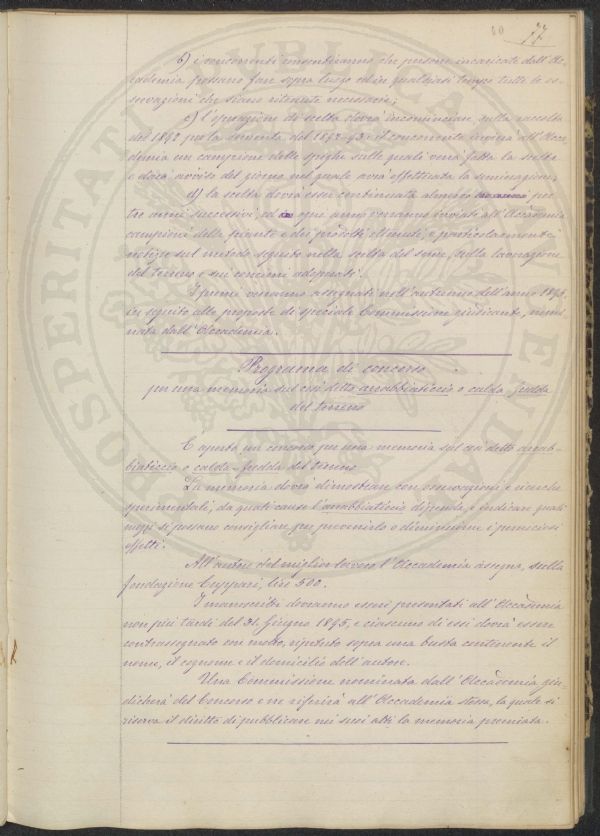 77
b) i concorrenti consentiranno che persone incaricate dall'Ac-
cademia possano fare sopra luogo ed in qualsiasi tempo tutte le os-
servazioni che siano ritenute necessarie;
c) l'operazione di scelta dovrà incominciare sulla raccolta
del 1892 per la sementa del 1892-93 e il concorrente invierà all'Acca-
demia un campione delle spighe sulle quali verrà fatta la scelta
e darà avviso del giorno nel quale avrà effettuata la seminagione;
d) la scelta dovrà esser continuata almeno per
tre anni successivi, ed ogni anno verranno inviati all'Accademia
campioni delle piante e dei prodotti ottenuti, e particolareggiate
notizie sul metodo seguito nella scelta del seme, nella lavorazione
del terreno e sui concimi adoperati.
I premi verranno assegnati nell'autunno dell'anno 1895,
in seguito alle proposte di speciale Commissione giudicante, nomi-
nata dall'Accademia.
Programma di concorso
per una memoria sul così detto arrabbiaticcio o calda-fredda
del terreno
È aperto un concorso per una memoria sul così detto arrab-
biaticcio o calda-fredda del terreno
La memoria dovrà dimostrare con osservazioni e ricerche
sperimentali, da quali cause l'arrabbiaticcio dipende, e indicare quali
mezzi si possano consigliare per prevenirlo o diminuirne i perniciosi
effetti.
All'autore del miglior lavoro l'Accademia assegna, sulla
fondazione Cuppari, lire 500.
I manoscritti dovranno essere presentati all'Accademia
non più tardi del 31 Giugno 1895, e ciascuno di essi dovrà essere
contrassegnato con motto, ripetuto sopra una busta contenente il
nome, il cognome e il domicilio dell'autore.
Una Commissione nominata dall'Accademia giu-
dicherà del Concorso e ne riferirà all'Accademia stessa, la quale si
riserva il diritto di pubblicare nei suoi atti la memoria premiata.